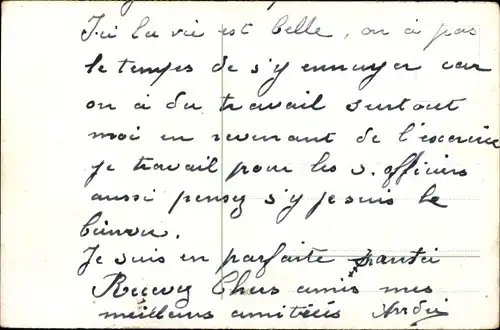 Ici la vie est belle, on a pas
le temps de s'y ennuyer car
on à du travail surtout
moi en revenant de l'exercice
je travail pour les s. officiers
aussi pensez s'y je suis le
bienvu.
Je suis en parfaite santé
Recevez Chers amis mes
meilleurs amitiés André